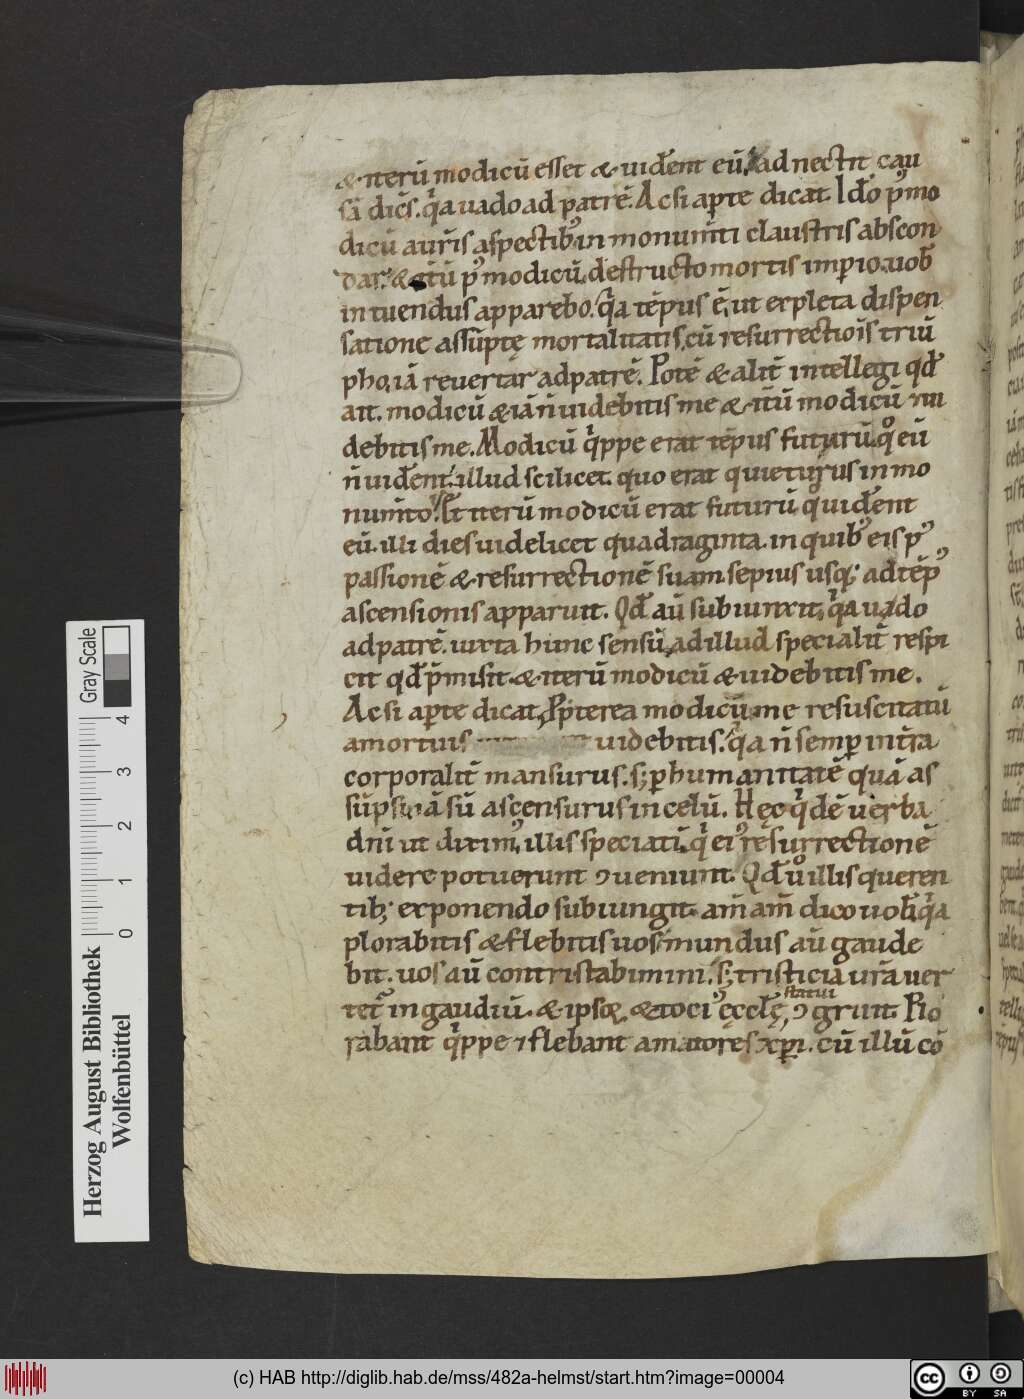 & iterū modicū esset & uident eū, adnectit cau
sā dicēs. q̓a uado ad patrē. Ac si ap̲te dicat. Ido p̓ mo
dicū aur̄is aspectib; in monum̄ti claustris abscon
dar. & itū p̓ modicū, destructo mortis imp̲io. uob̄
intuendus apparebo. q̓a tēpus ē, ut expleta dispen
satione assūptę mortalitatis, cū resurrectiōis triū
pho, iā reuertar ad patrē. Potē & alit̄ intellegi qd̄
ait. modicū & iā n̄ uidebitis me & itū modicū & ui
debitis me. Modicū q̓ppe erat tēpus futurū qͦ eū
n̄ uident. illud scilicet. quo erat quieturus in mo
num̄to. Et iterū modicū erat futurū, qͦ uident
eū. illi dies uidelicet quadraginta. in quib; eis p̓
passionē & resurrectionē suam sepius usq; ad tēp̓
ascensionis apparuit. Qd̄ aū subiunxit, q̓a uado
ad patrē. iuxta hunc sensū, ad illud specialit̄ respi
cit qd̄ p̄misit. & iterū modicū & uidebitis me.
Ac si ap̲te dicat, Ppterea modicū me resuscitatū
a mortuis uidebitis. q̓a n̄ semp̲ in t̄ra
corporalit̄ mansurus. s; p̲ humanitatē quā as
sūpsi iā sū ascensurus in celū. Hęc q̓dē uerba
dn̄i ut dixim̓, illis speciatī. q̓ ei̓ resurrectionē
uidere potuerunt ɔueniunt. Qd̄ u͛o illis queren
tib; exponendo subiungit. am̄ am̄ dico uob̄ q̓a
plorabitis & flebitis uos. mundus aū gaude
bit. uos aū contristabimini. s; tristicia ur̄a uer
tet̓ in gaudiū. & ipsoꝝ & toci̓ ęcclę, statui
ɔgruit. Plo
rabant q̓ppe ⁊ flebant amatores xp̄i. cū illū cō
Gray Scale
0 1 2 3 4
Herzog August Bibliothek
Wolfenbüttel
(c) HAB http://diglib.hab.de/mss/482a-helmst/start.htm?image=00004
cc BY SA